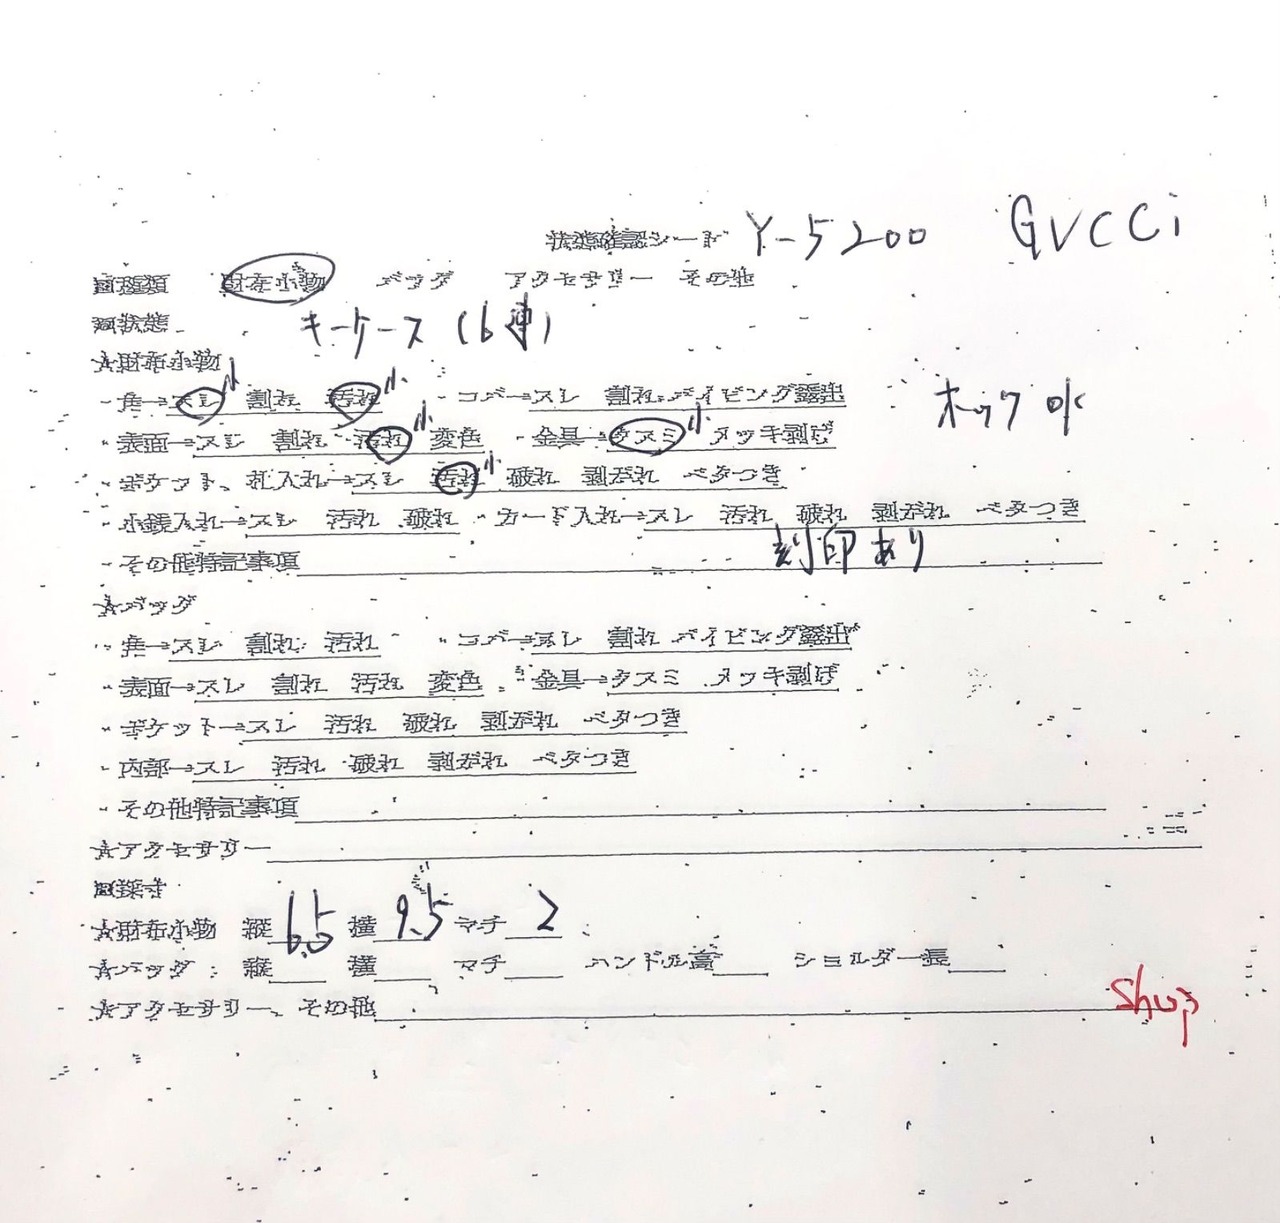 状態確認シート Y-5200 GUCCi
■種類 財布小物 バッグ アクセサリー その他
■状態 キーケース(6連)
★財布小物
・角→スレ小 割れ 汚れ小 ・コバ→スレ 割れ パイピング露出
・表面→スレ 割れ 汚れ小 変色 ・金具→クスミ小 メッキ剥げ ホック
・ポケット、札入れ→スレ 汚れ小 破れ 剥がれ ベタつき
・小銭入れ→スレ 汚れ 破れ ・カード入れ→スレ 汚れ 破れ 剥がれ ベタつき
・その他特記事項 刻印あり
★バッグ
・角→スレ 割れ 汚れ ・コバ→スレ 割れ パイピング露出
・表面→スレ 割れ 汚れ 変色 ・金具→クスミ メッキ剥げ
・ポケット→スレ 汚れ 破れ 剥がれ ベタつき
・内部→スレ 汚れ 破れ 剥がれ ベタつき
・その他特記事項
★アクセサリー
■採寸
★財布小物 縦 6.5 横 9.5 マチ 2
★バッグ:縦 横 マチ ハンドル高 ショルダー長
★アクセサリー、その他